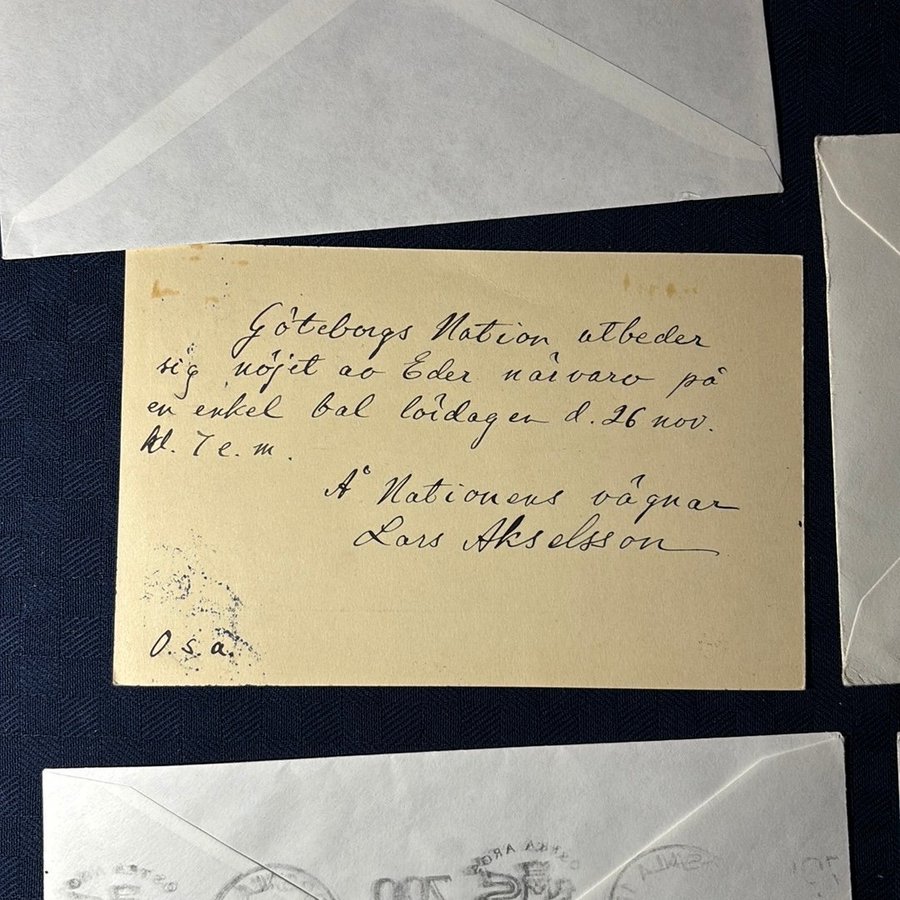 Göteborgs Nation utbeder
sig nöjet av Eder närvaro på
en enkel bal lördagen d. 26 nov.
kl. 7 e. m.
Å Nationens vägnar
Lars Akselsson
O. s. a.
700